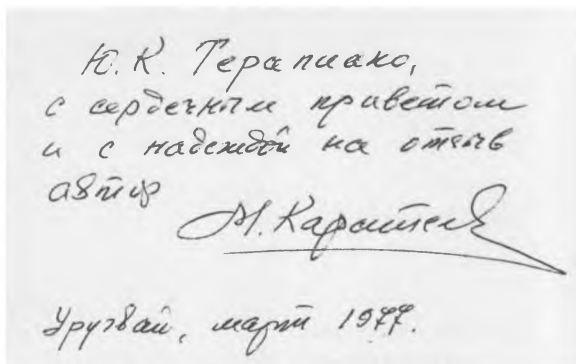 Ю. К. Терапиано,
с сердечным приветом
и с надеждой на отзыв
автор
М. Каратеев
Уругвай, март 1977.